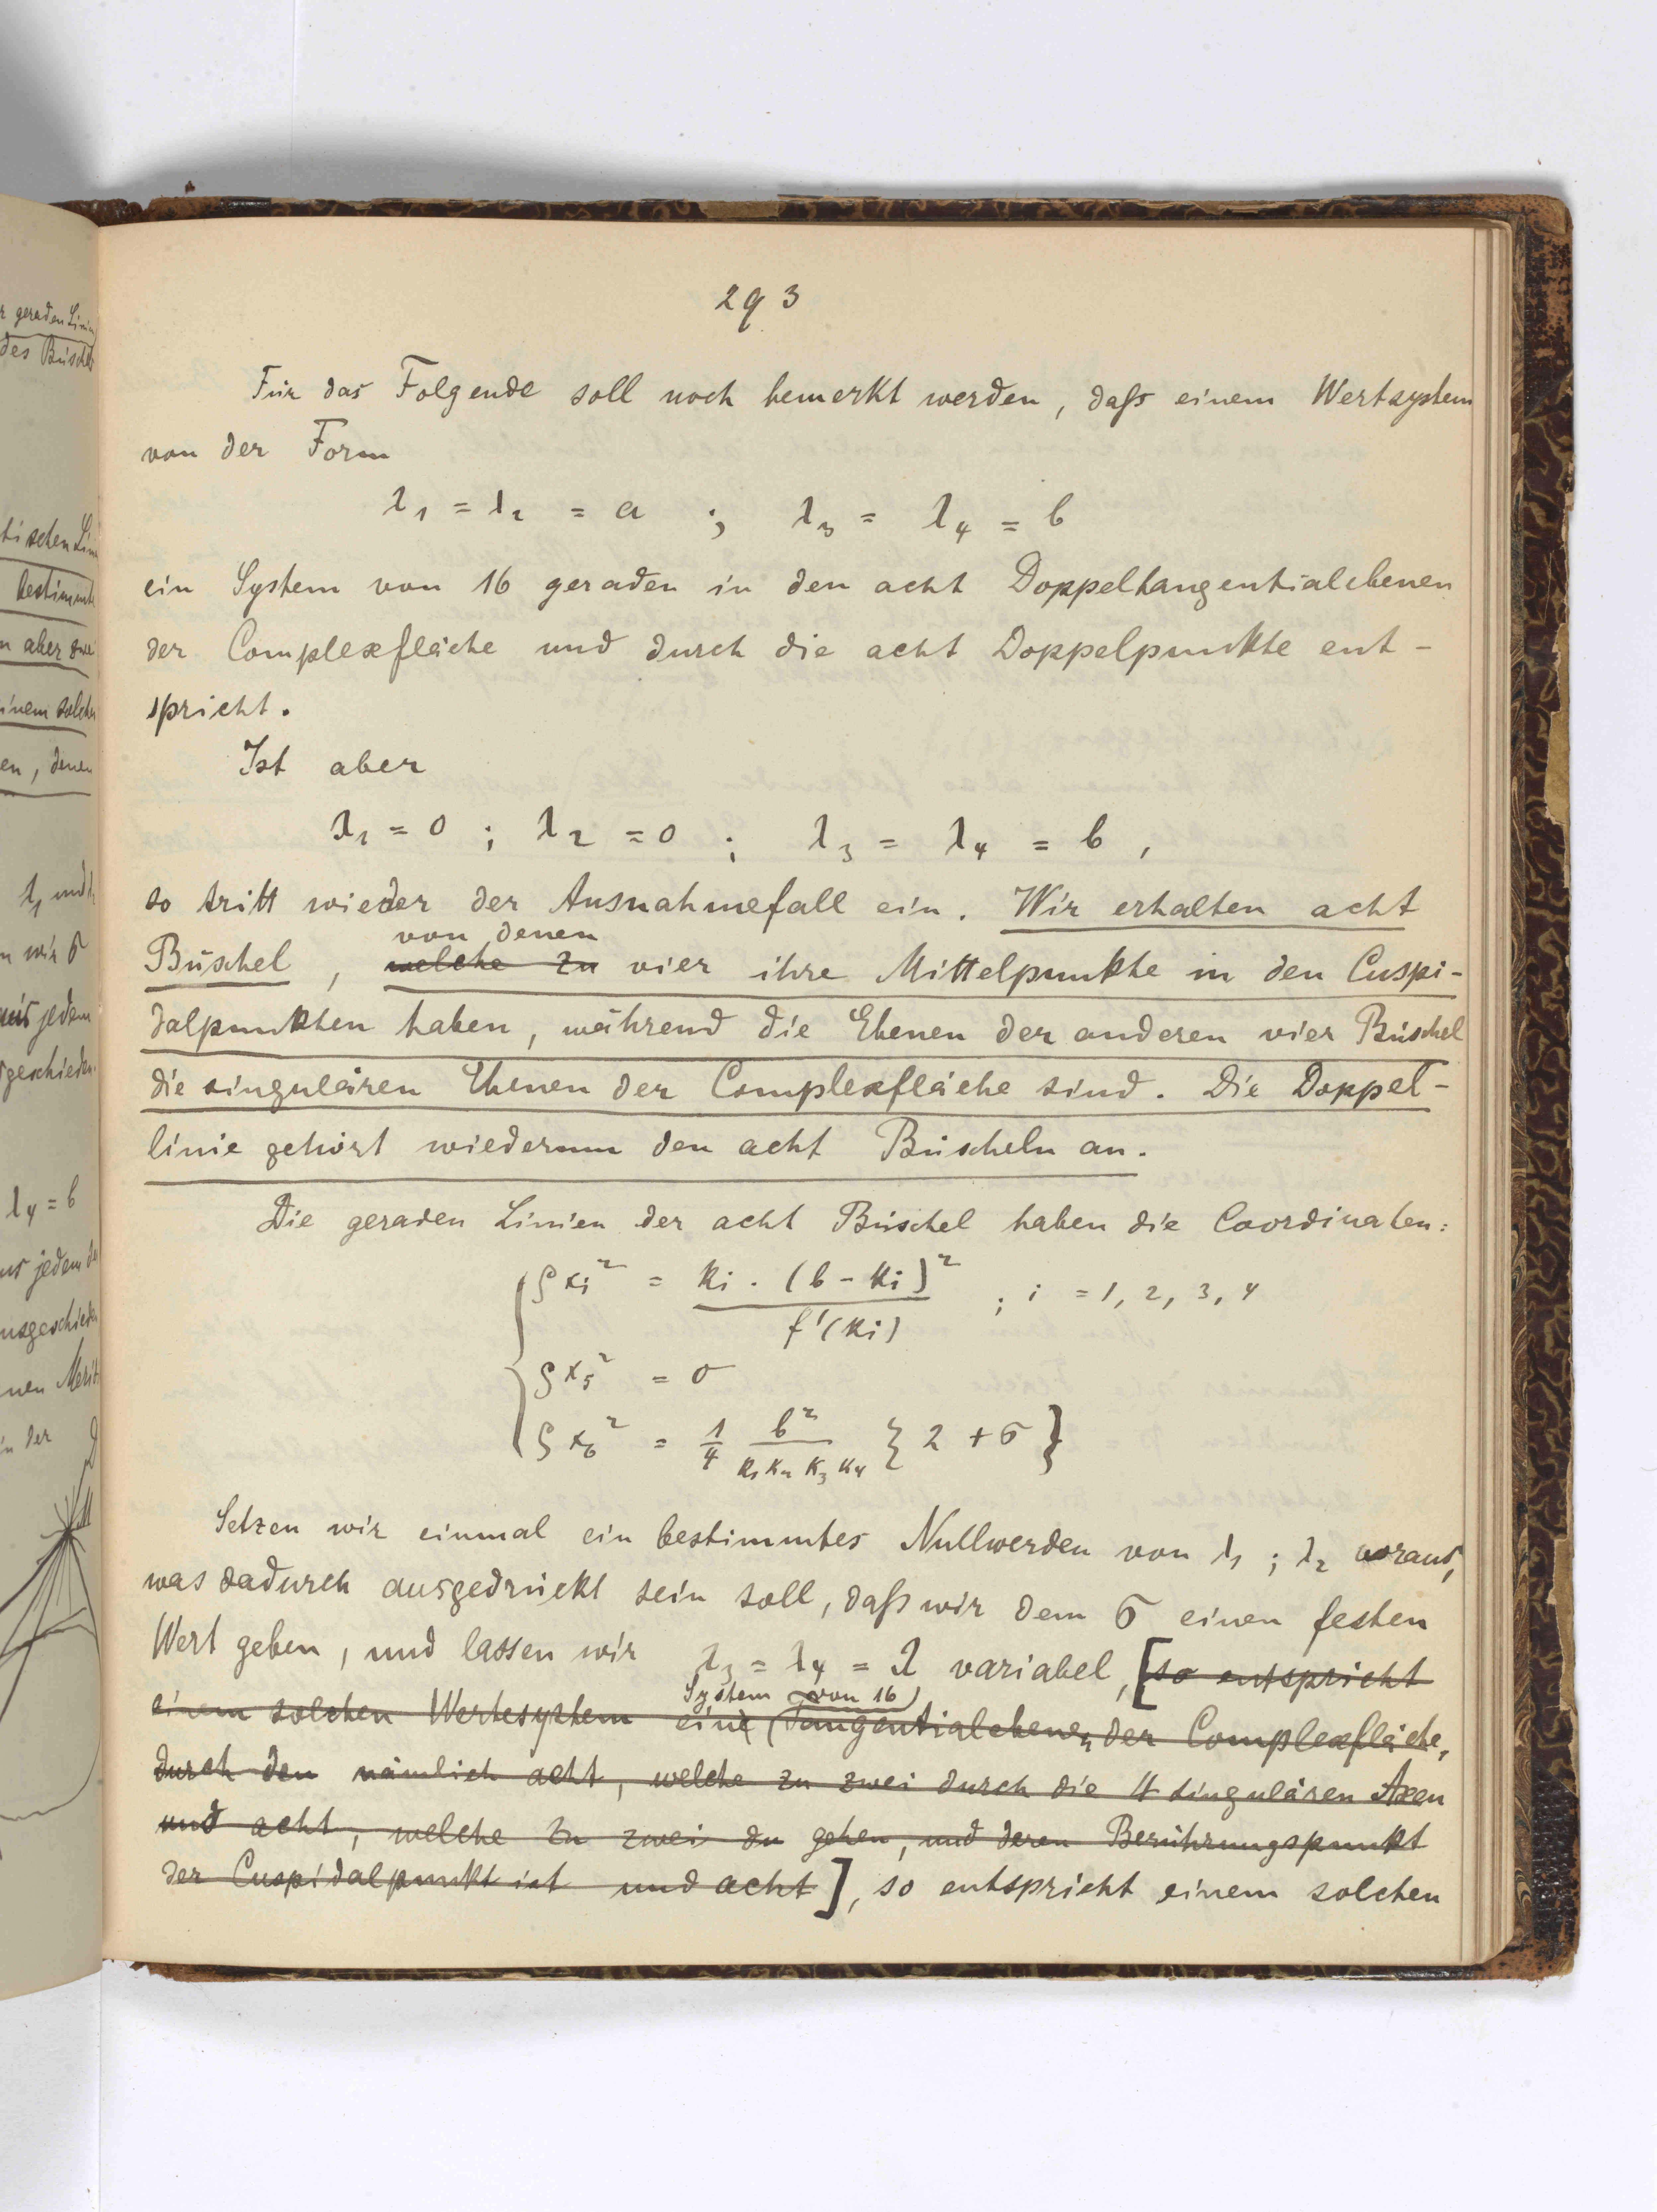 293
Für das Folgende soll noch bemerkt werden, daſs einem Wertsystem
von der Form
λ₁ = λ₂ = a ; λ₃ = λ₄ = b
ein System von 16 geraden in den acht Doppeltangentialebenen
der Complexfläche und durch die acht Doppelpunkte ent-
spricht.
Ist aber
λ₁ = 0 ; λ₂ = 0 ; λ₃ = λ₄ = b ,
so tritt wieder der Ausnahmefall ein. Wir erhalten acht
von denen
Büschel , welche zu vier ihre Mittelpunkte in den Cuspi-
dalpunkten haben, während die Ebenen der anderen vier Büschel
die singulären Ebenen der Complexfläche sind. Die Doppel-
linie gehört wiederum den acht Büscheln an.
Die geraden Linien der acht Büschel haben die Coordinaten:
ρxᵢ² = kᵢ . (b - kᵢ)² / f'(kᵢ) ; i = 1, 2, 3, 4
ρx₅² = σ
ρx₆² = 1/4 b² / k₁ k₂ k₃ k₄ { 2 + σ }
Setzen wir einmal ein bestimmtes Nullwerden von λ₁ ; λ₂ voraus,
was dadurch ausgedrückt sein soll, daſs wir dem σ einen festen
Wert geben, und lassen wir λ₃ = λ₄ = λ variabel, [so entspricht
System von 16
einem solchen Wertesystem eine (Tangentialebenen der Complexfläche,
durch den nämlich acht, welche zu zwei durch die 4 singulären Axen
und acht, welche zu zwei du gehen, und deren Berührungspunkt
der Cuspidalpunkt ist und acht], so entspricht einem solchen
r geraden Linien
des Büschels
tischen Lini
bestimmte
n aber zwei
einem solchen
en, denen
λ₁ und
n wir σ
aus jedem
sgeschieden.
λ₄ = b
us jedem de
usgeschieden
nen Merit
in der